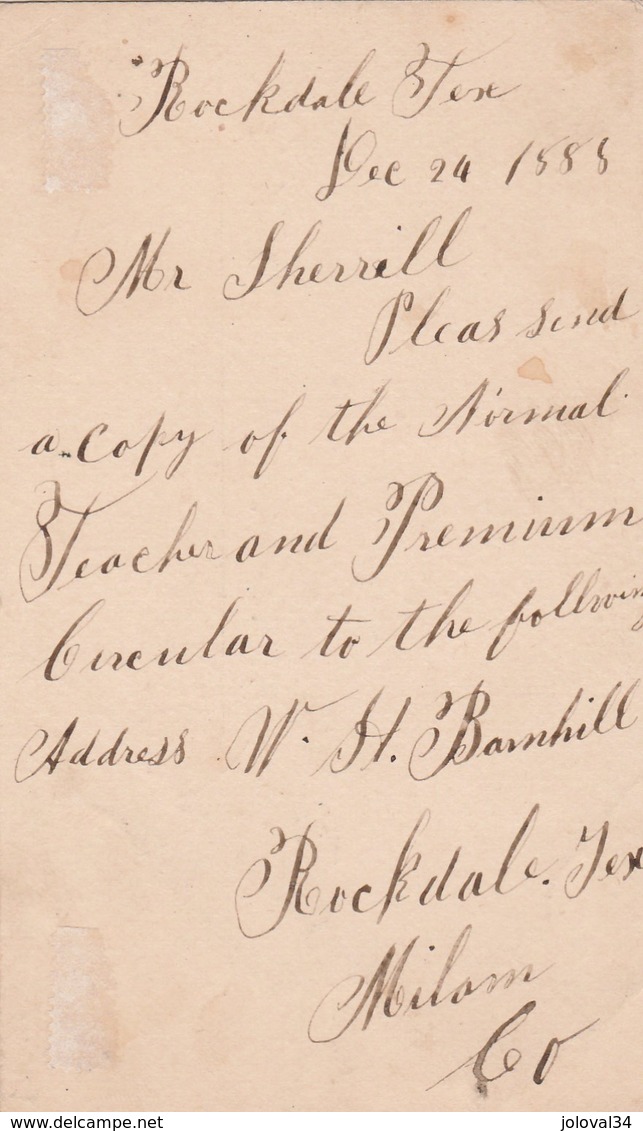 Rockdale Tex
Dec 24 1888
Mr Sherrill
Pleas send
a copy of the Normal
Teacher and Premium
Circular to the follwing
Address W. H. Barnhill
Rockdale. Tex
Milam
Co
delcampe.net
joloval34